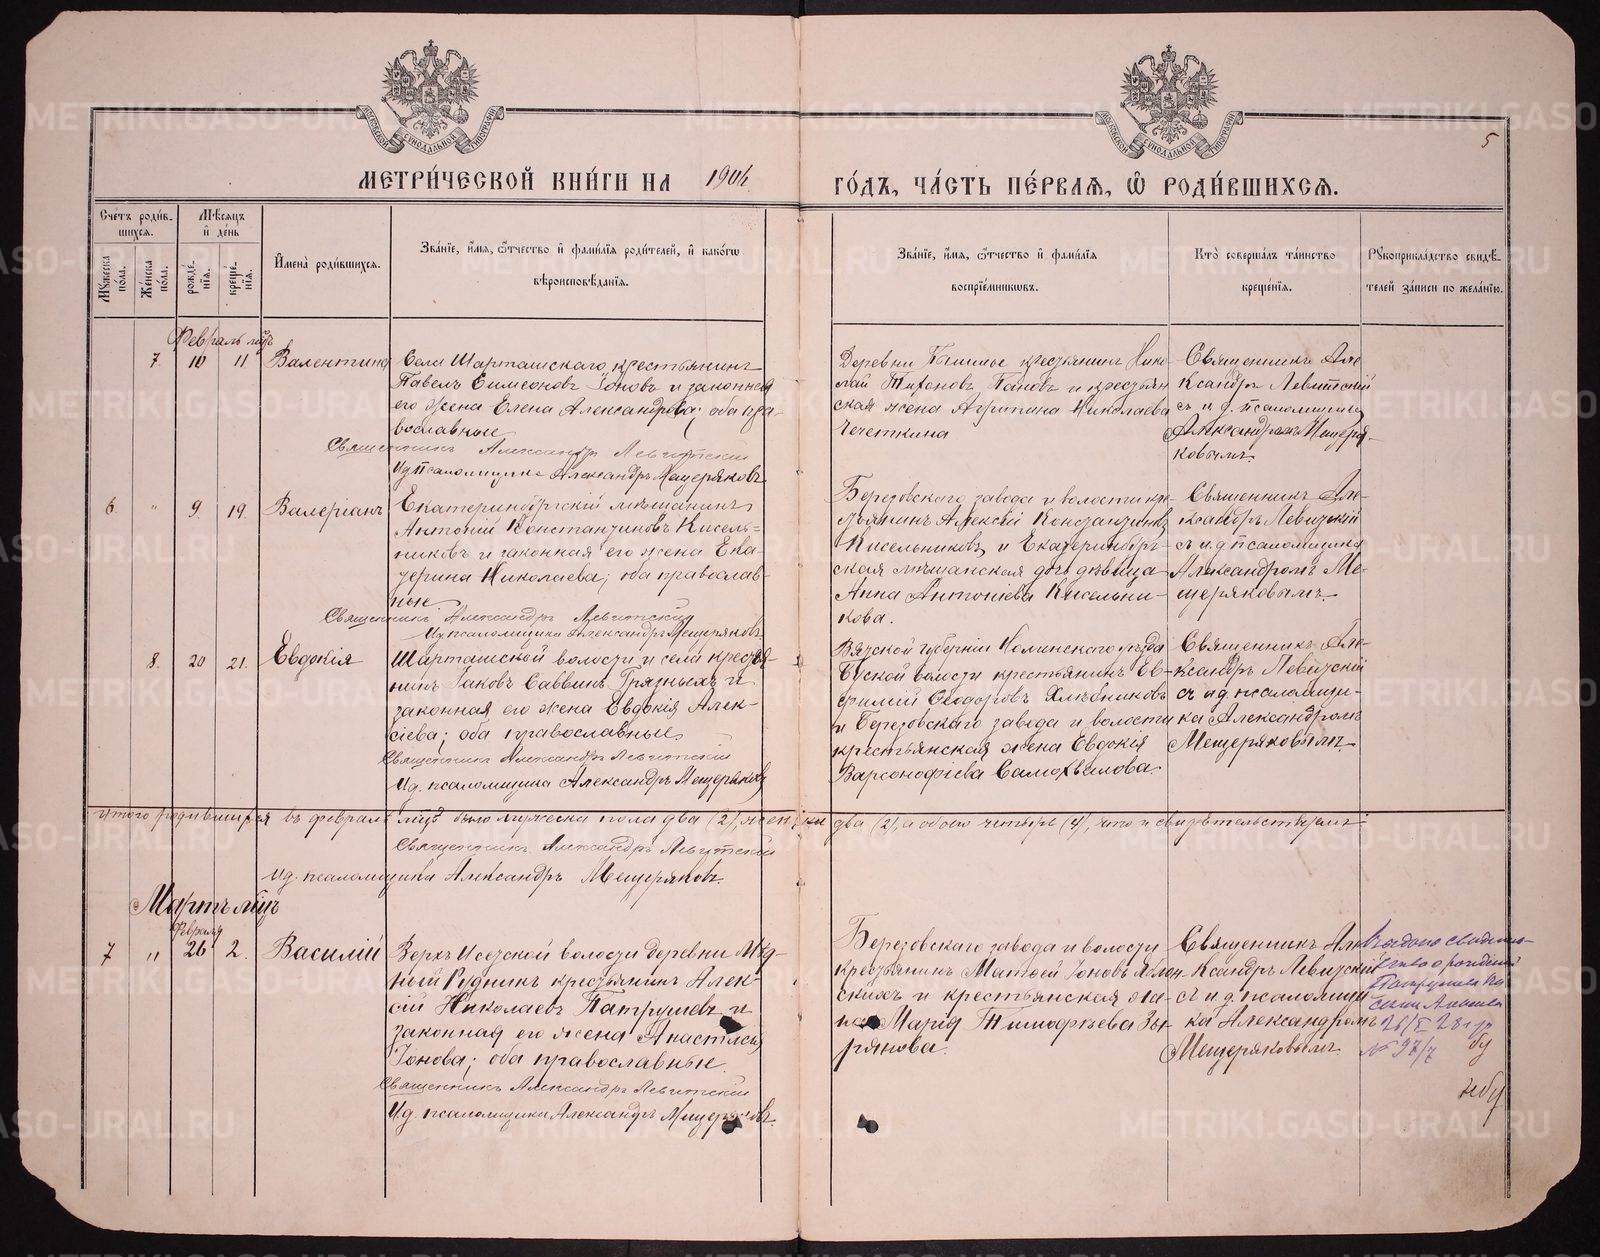 МЕТРИ́ЧЕСКОЙ КНИ́ГИ НА 1904
ГО́ДЪ, ЧА́СТЬ ПЕ́РВАѦ, Ѽ РОДИ́ВШИХСѦ.
5
Сче́тъ роди́в-
шихсѧ.
Мѣ́сѧцъ
и҆ де́нь
Мꙋжеска по́ла.
Же́нска по́ла.
рожде́-
нїѧ.
креще́-
нїѧ.
И҆мена̀ роди́вшихсѧ.
Зва́нїе, и҆́мѧ, ѻ҆́тчество и҆ фами́лїѧ роди́телей, и҆ како́гѡ
вѣроисповѣ́данїѧ.
Зва́нїе, и҆́мѧ, ѻ҆́тчество и҆ фами́лїѧ
воспрїе́мникѡвъ.
Кто̀ соверша́лъ та́инство
креще́нїѧ.
Рꙋкоприкла́дство свидѣ́-
телей за́писи по жела́нїю.
Февраль мцъ
7 10 11 Валентина
Села Шарташскаго крестьянинъ
Павелъ Симеоновъ Іоновъ и законная
его жена Елена Александрова; оба пра-
вославные
Священникъ Александръ Левитскій
И.д. псаломщика Александръ Мещеряковъ
Деревни Пышмы крестьянинъ Нико-
лай Тихоновъ Пановъ и крестьян
ская жена Агрипина Николаева
Чечеткина
Священникъ Але
ксандръ Левитскій
съ и.д. псаломщика
Александромъ Мещеря-
ковымъ.
6 " 9 19. Валеріанъ
Екатеринбургскій мѣщанинъ
Антоній Константиновъ Кисель-
никовъ и законная его жена Ека-
терина Николаева; оба православ-
ные
Священникъ Александръ Левитскій
И.д. псаломщика Александръ Мещеряковъ
Березовскаго завода и волости кре-
стьянинъ Алексій Константиновъ
Кисельниковъ и Екатеринбург-
ская мѣщанская дочь дѣвица
Анна Антоніева Кисельни-
кова.
Священникъ Але-
ксандръ Левитскій
съ и.д. псаломщика
Александромъ Ме-
щеряковымъ.
8. 20 21. Евдокія
Шарташской волости и села крестья-
нинъ Іаковъ Саввинъ Грязныхъ и
законная его жена Евдокія Алек-
сіева; оба православные
Священникъ Александръ Левитскій
И.д. псаломщика Александръ Мещеряковъ
Вятской губерніи Нолинскаго уѣзда
волости крестьянинъ Ев-
фимій Ѳеодоровъ Хлѣбниковъ
и Березовскаго завода и волости
крестьянская жена Евдокія
Варсонофіева Самохвалова.
Священникъ Але-
ксандръ Левитскій
съ и.д. псаломщи-
ка Александромъ
Мещеряковымъ.
Итого родившихся въ февралѣ мцѣ было мужеска пола два (2), женска два (2), а обоего четыре (4), что и свидѣтельствуемъ
Священникъ Александръ Левитскій
И.д. псаломщика Александръ Мещеряковъ.
Мартъ мцъ
Февраля
7 " 26 2. Василій
Верхъ Исетской волости деревни Мѣд-
ный Рудникъ крестьянинъ Алек-
сій Николаевъ Патрушевъ и
законная его жена Анастасія
Іонова; оба православные.
Священникъ Александръ Левитскій
И.д. псаломщика Александръ Мещеряковъ.
Березовскаго завода и волости
крестьянинъ Матѳей Іоновъ Яблон-
скихъ и крестьянская же-
на Марія Тимофѣева Зы-
рянова.
Священникъ Але
ксандръ Левитскій
съ и.д. псаломщи
ка Александромъ
Мещеряковымъ.
Выдано свидетель-
ство о рождении
Патрушева Ва
силия
№ 97/7
METRIKI.GASO-URAL.RU